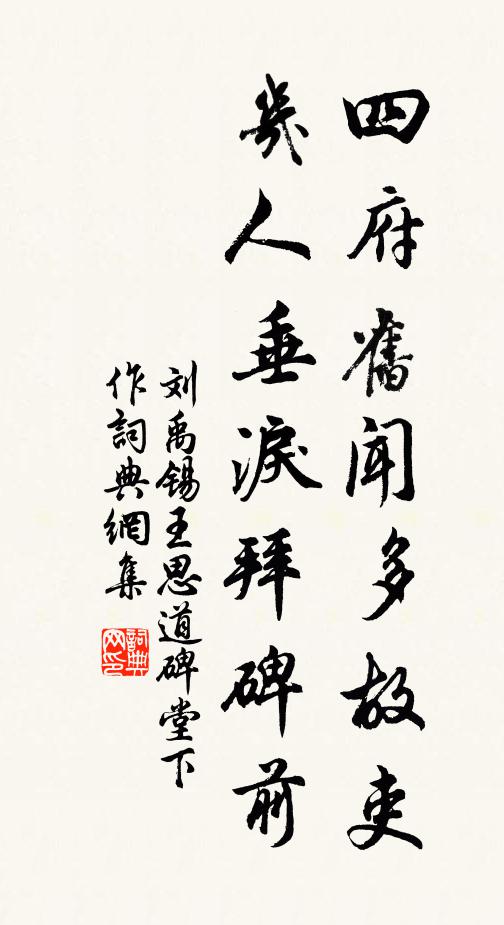 四府舊聞多故吏
幾人垂淚拜碑前
刘禹錫王思道碑堂下
作詞典網集
詞典网印